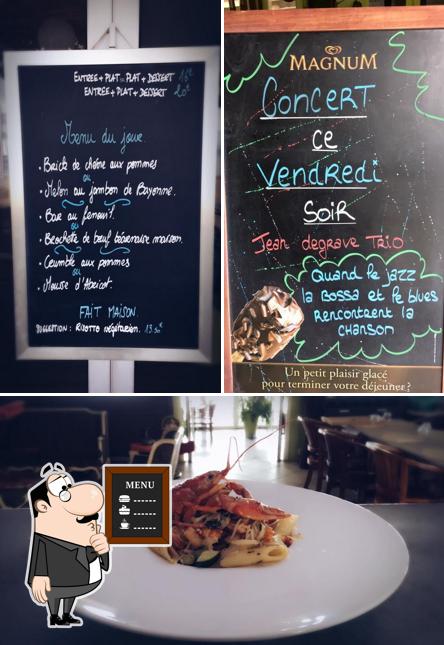 ENTREE + PLAT = PLAT + DESSERT 16€
ENTREE + PLAT + DESSERT 20€
Menu du jour.
• Brick de chèvre aux pommes
ou
• Melon au jambon de Bayonne.
• Bar au fenouil.
ou
• Brochette de bœuf béarnaise maison.
• Crumble aux pommes
ou
• Mousse d'Abricot.
FAIT MAISON.
SUGGESTION : RISOTTO végétarien. 13.50€
MAGNUM
CONCERT
CE
VENDREDI
SOIR
Jean degrave TRIO
Quand le jazz
la Bossa et le blues
Rencontrent la
chanson
Un petit plaisir glacé
pour terminer votre déjeuner ?
MENU